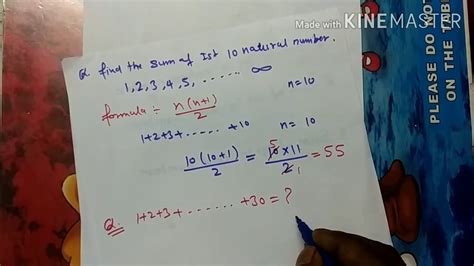 Made with KINEMASTER
PLEASE DO NOT
ON THE TABL
Q. find the sum of Ist 10 natural number.
1, 2, 3, 4, 5, ....... ∞
formula :- n(n+1)/2
n=10
1+2+3+ ...... +10
n= 10
10(10+1)/2 = 5 10×11/2 1 = 55
Q. 1+2+3+ ....... +30 = ?